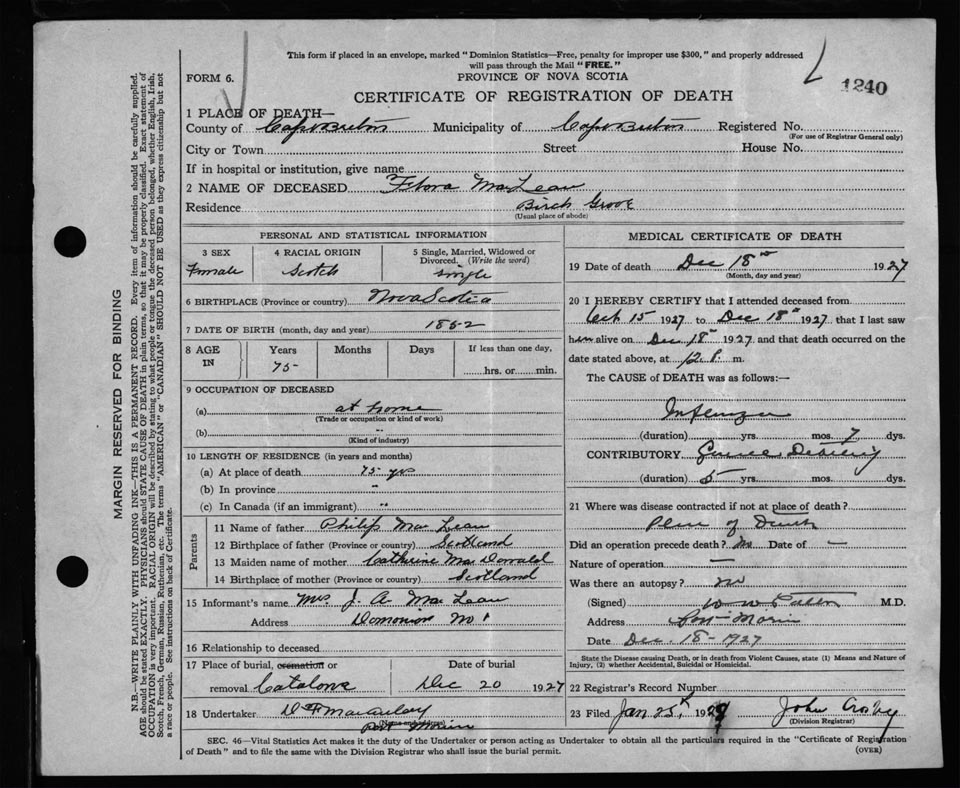 This form if placed in an envelope, marked "Dominion Statistics—Free, penalty for improper use $300," and properly addressed
will pass through the Mail "FREE."
FORM 6.
PROVINCE OF NOVA SCOTIA
1240
CERTIFICATE OF REGISTRATION OF DEATH
1 PLACE OF DEATH—
County of Cape Breton Municipality of Cape Breton Registered No.
(For use of Registrar General only)
City or Town Street House No.
If in hospital or institution, give name
2 NAME OF DECEASED Flora MacLean
Residence Birch Grove
(Usual place of abode)
PERSONAL AND STATISTICAL INFORMATION
3 SEX
Female
4 RACIAL ORIGIN
Scotch
5 Single, Married, Widowed or
Divorced. (Write the word)
single
6 BIRTHPLACE (Province or country) Nova Scotia
7 DATE OF BIRTH (month, day and year) 1852
8 AGE IN
Years Months Days If less than one day,
75 hrs. or min.
9 OCCUPATION OF DECEASED
(a) at home
(Trade or occupation or kind of work)
(b) "
(Kind of industry)
10 LENGTH OF RESIDENCE (in years and months)
(a) At place of death 75 yrs
(b) In province "
(c) In Canada (if an immigrant) "
Parents
11 Name of father Philip MacLean
12 Birthplace of father (Province or country) Scotland
13 Maiden name of mother Catherine MacDonald
14 Birthplace of mother (Province or country) Scotland
15 Informant's name Mrs. J. A. MacLean
Address Domonion No 1
16 Relationship to deceased
17 Place of burial, cremation or Date of burial
removal Catalone Dec 20 1927
18 Undertaker
Port Morien
MEDICAL CERTIFICATE OF DEATH
19 Date of death Dec 18th 1927
(Month, day and year)
20 I HEREBY CERTIFY that I attended deceased from
Oct 15 1927 to Dec 18th 1927 that I last saw
h alive on Dec 18th 1927 and that death occurred on the
date stated above, at 12 P. m.
The CAUSE of DEATH was as follows:—
Influenza
(duration) yrs. mos. 7 dys.
CONTRIBUTORY Debility
(duration) 5 yrs. mos. dys.
21 Where was disease contracted if not at place of death?
Place of Death
Did an operation precede death? no Date of —
Nature of operation —
Was there an autopsy? no
(Signed) M.D.
Address Port Morien
Date Dec. 18-1927
State the Disease causing Death, or in death from Violent Causes, state (1) Means and Nature of
Injury, (2) whether Accidental, Suicidal or Homicidal.
22 Registrar's Record Number
23 Filed Jan 25th 192 John Crosby
(Division Registrar)
SEC. 46—Vital Statistics Act makes it the duty of the Undertaker or person acting as Undertaker to obtain all the particulars required in the "Certificate of Registration
of Death" and to file the same with the Division Registrar who shall issue the burial permit.
(OVER)
MARGIN RESERVED FOR BINDING
N.B.—WRITE PLAINLY WITH UNFADING INK—THIS IS A PERMANENT RECORD. Every item of information should be carefully supplied.
AGE should be stated EXACTLY. PHYSICIANS should STATE CAUSE OF DEATH in plain terms, so that it may be properly classified. Exact statement of
OCCUPATION is very important. RACIAL ORIGIN will be described by stating to what people or tongue the deceased person belonged, whether English, Irish,
Scotch, French, German, Russian, Ruthenian, etc. The terms "AMERICAN" or "CANADIAN" SHOULD NOT BE USED as they express citizenship but not
a race or people. See instructions on back of Certificate.